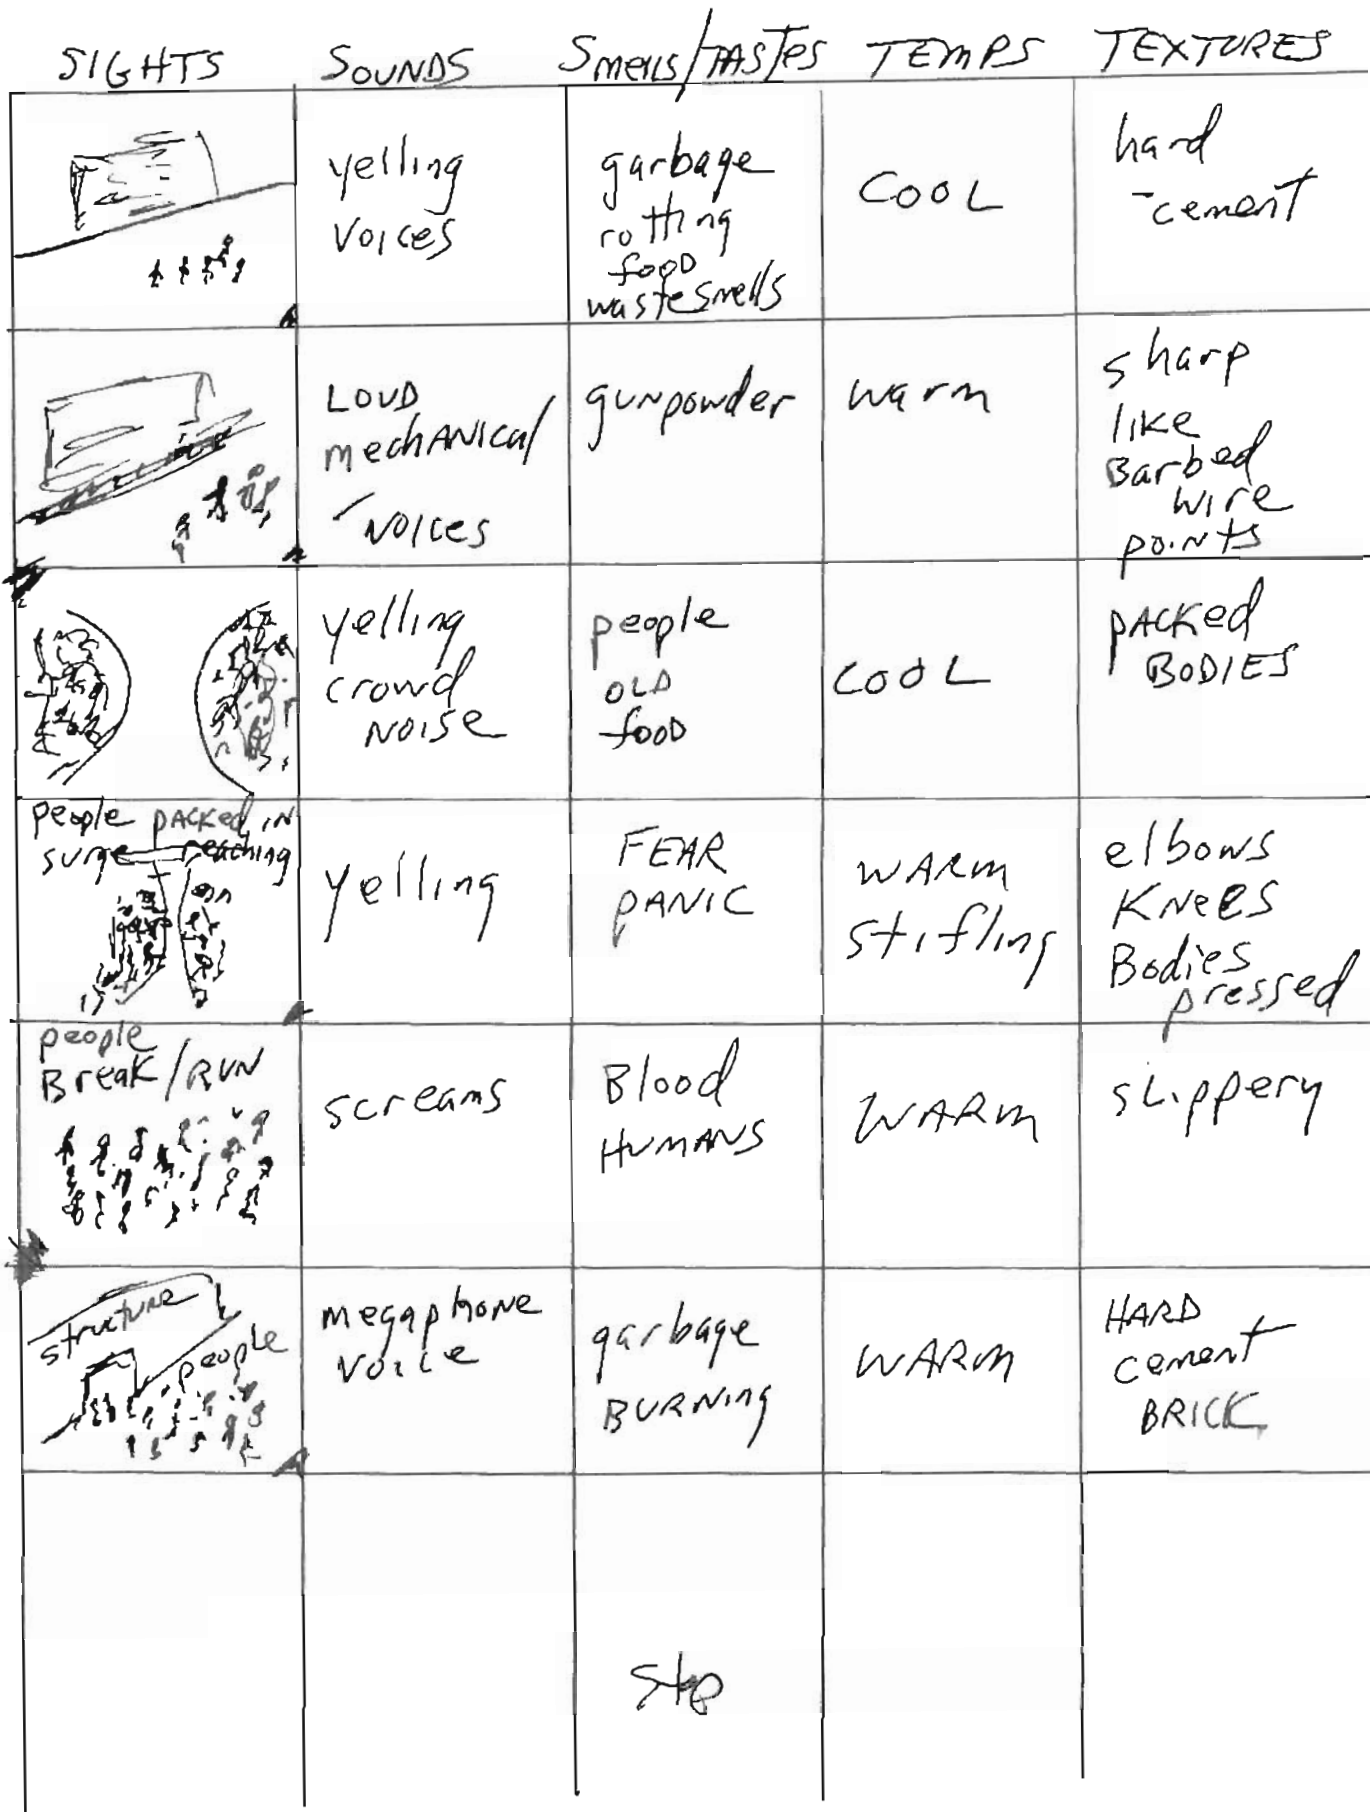 SIGHTS SOUNDS Smells/TASTes TEMPS TEXTURES
yelling
voices
garbage
rotting
food
waste smells
COOL
hard
-cement
LOUD
mechANICal
-NOICes
gunpowder
warm
sharp
like
Barbed
wire
points
yelling
crowd
NOISe
people
OLD
food
COOL
pACKed
BODIES
people pACKed IN
surge reaching
yelling
FEAR
PANIC
WARM
stifling
elbows
KNees
Bodies
pressed
people
Break/RUN
screams
Blood
HUMANS
WARM
sLippery
structure
people
megaphone
voice
garbage
BURNing
WARM
HARD
cement
BRICK
Stop